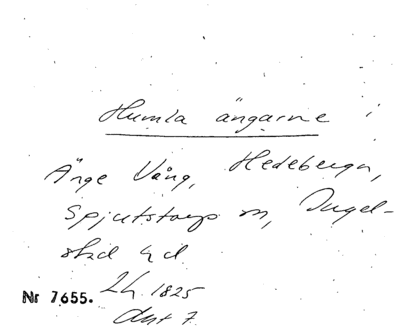 Humla ängarne i
Änge Vång, Hedeberga,
Spjutstorps sn, Ingel-
stad hd
Lh. 1825
Nr 7655.
Akt 7